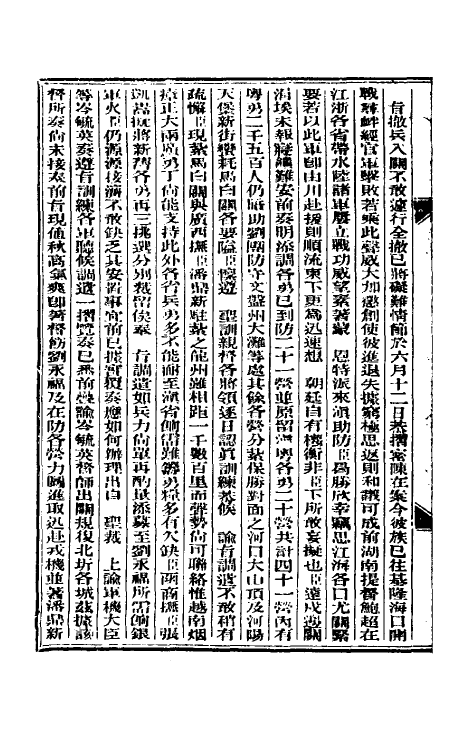 旨撤兵入關不敢遽行全撤已將礙難情節於六月十二日恭摺密陳在案今彼族已往基隆海口開
戰釁衅經官軍擊敗若乘此聲威大加懲創使彼進退失據窮極思返則和議可成前湖南提督鮑超在
江浙各省帶水陸諸軍屢立戰功威望素著蒙　恩特派來滇助防臣爲勝欣幸竊思江海各口尤關緊
要若以此軍卽由川赴援則順流東下更爲迅速想　朝廷自有權衡非臣下所敢妄擬也臣遠戍邊關
涓埃未報寢饋難安前奏明添調各勇已到防二十一營並原留粵各勇二十營共計四十一營內有
粵勇二千五百人仍暗助劉團防守文盤州大灘等處其餘各營分紮保勝對面之河口大山頂及河陽
天保新街蠻耗馬白關各要隘臣懍遵　聖訓親督各將領逐日認眞訓練恭候　諭旨調遣不敢稍有
疏懈臣現紮馬白關與廣西撫臣潘鼎新駐紮之龍州雖相距一千數百里而聲勢尙可聯絡惟越南烟
瘴正大兩廣勇丁尙能支持此外各省兵勇多不能耐至滇省餉需難籌勇糧多有欠缺臣商撫臣張
凱嵩抵將新舊各勇再三挑選分別裁留俟奉　旨調遣如兵力尙單再酌量添募至劉永福所需餉銀
軍火臣仍源源接濟不敢缺乏其安置事宜前已據實覆奏應如何辦理出自　聖裁　上諭軍機大臣
等岑毓英奏遵旨訓練各軍聽候調遣一摺覽奏已悉前疊諭岑毓英督師出關規復北圻各城茲據該
督所奏尙未接奉前旨現値秋高氣爽卽著督飭劉永福及在防各營力圖進取迅赴戎機並著潘鼎新